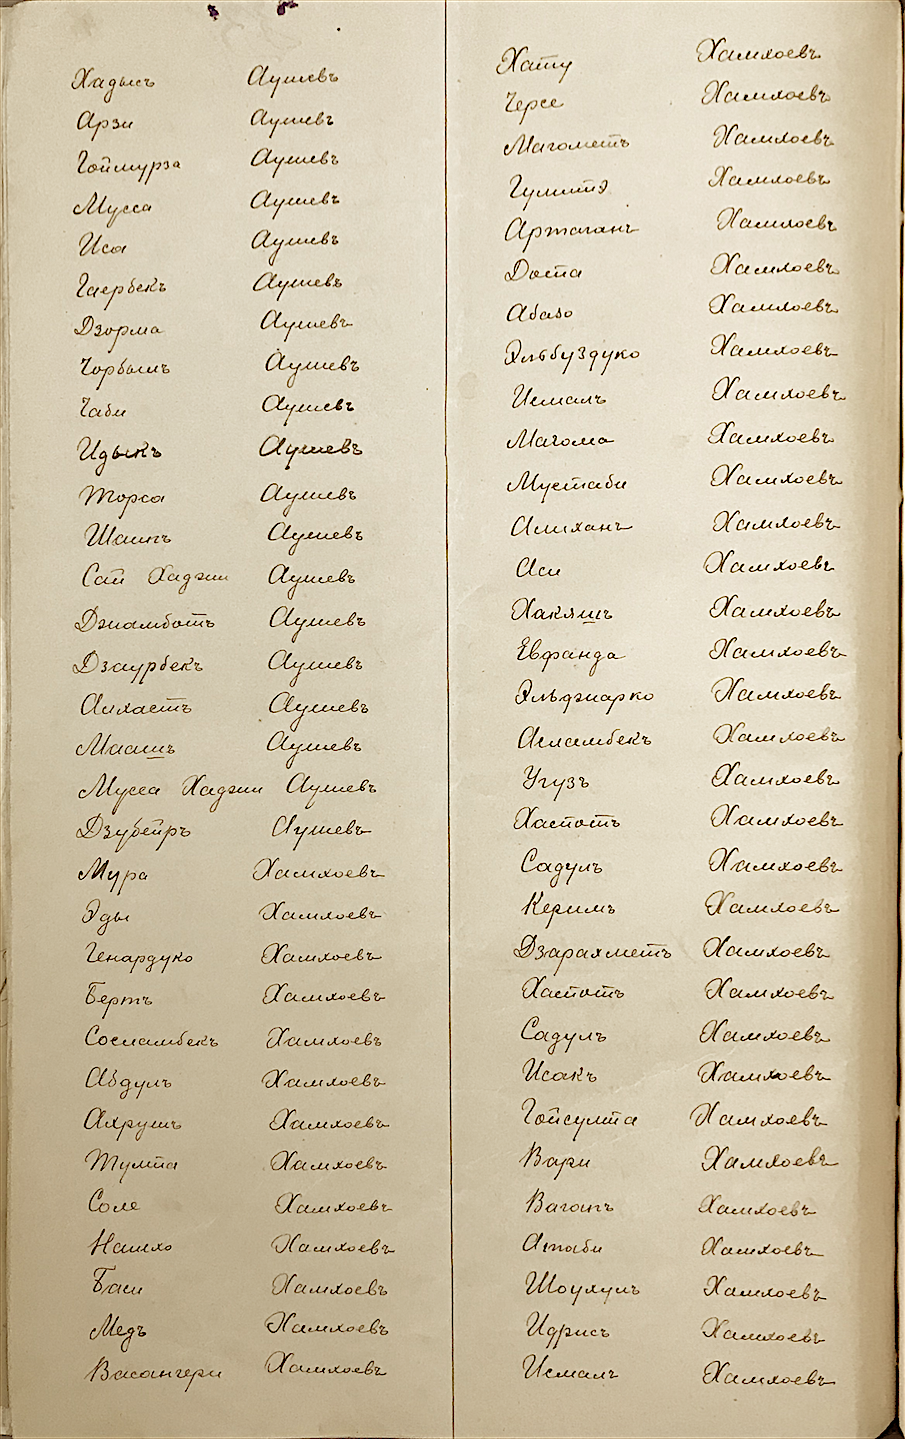 Хадысъ Аушевъ
Арзи Аушевъ
Гоймурза Аушевъ
Мусса Аушевъ
Иса Аушевъ
Гаербекъ Аушевъ
Дзорма Аушевъ
Чорбышъ Аушевъ
Чаби Аушевъ
Идыкъ Аушевъ
Торса Аушевъ
Шаипъ Аушевъ
Сай Хаджи Аушевъ
Джамботъ Аушевъ
Дзаурбекъ Аушевъ
Алхастъ Аушевъ
Мааш̲ъ Аушевъ
Мусса Хаджи Аушевъ
Дзубейръ Аушевъ
Мура Хамхоевъ
Эды Хамхоевъ
Генардуко Хамхоевъ
Бертъ Хамхоевъ
Сосламбекъ Хамхоевъ
Абдулъ Хамхоевъ
Ахрушъ Хамхоевъ
Тулта Хамхоевъ
Соле Хамхоевъ
Нашхо Хамхоевъ
Баси Хамхоевъ
Медъ Хамхоевъ
Васангери Хамхоевъ
Хату Хамхоевъ
Черсе Хамхоевъ
Магометъ Хамхоевъ
Гултэ Хамхоевъ
Артаганъ Хамхоевъ
Доста Хамхоевъ
Абазо Хамхоевъ
Эльбуздуко Хамхоевъ
Исмалъ Хамхоевъ
Магома Хамхоевъ
Мустаби Хамхоевъ
Алиханъ Хамхоевъ
Аси Хамхоевъ
Хакяшъ Хамхоевъ
Евфанда Хамхоевъ
Эльджарко Хамхоевъ
Асламбекъ Хамхоевъ
Угузъ Хамхоевъ
Хаспотъ Хамхоевъ
Садулъ Хамхоевъ
Керимъ Хамхоевъ
Дзарахметъ Хамхоевъ
Хаспотъ Хамхоевъ
Садулъ Хамхоевъ
Исакъ Хамхоевъ
Гойсулта Хамхоевъ
Вари Хамхоевъ
Вагапъ Хамхоевъ
Атаби Хамхоевъ
Шоухулъ Хамхоевъ
Идрисъ Хамхоевъ
Исмалъ Хамхоевъ